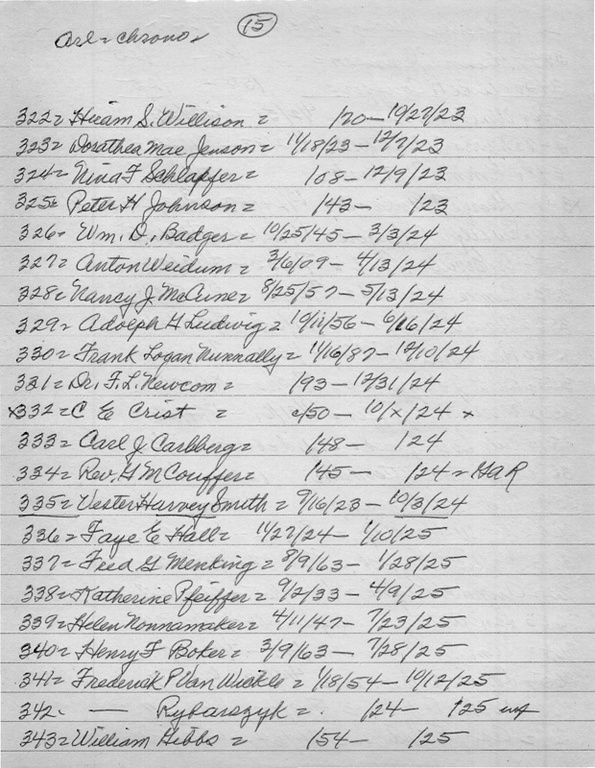 15
Arl = chrono =
322 = Hiram S. Willison = /20 — 10/27/23
323 = Dorathea Mae Jenson = 11/18/23 — 12/7/23
324 = Nina F Schlapfer = /08 — 12/9/23
325 = Peter H Johnson = /43 — /23
326 = Wm. D. Badger = 10/25/45 — 3/3/24
327 = Anton Weidum = 3/6/09 — 4/13/24
328 = Nancy J. McCune = 8/25/57 — 5/13/24
329 = Adolph H Ludwig = 10/11/56 — 6/16/24
330 = Frank Logan Nunnally = 11/16/87 — 12/10/24
331 = Dr. F. L. Newcom = /93 — 12/31/24
x332 = C E Crist = c/50 — 10/x/24 x
333 = Carl J. Carlberg = /48 — /24
334 = Rev. H M Couffer = /45 — /24 = GAR
335 = Vester Harvey Smith = 9/16/23 — 10/3/24
336 = Faye E Hall = 11/27/24 — 1/10/25
337 = Fred G Menking = 8/9/63 — 1/28/25
338 = Katherine Pfeiffer = 9/2/33 — 4/9/25
339 = Helen Nonnamaker = 4/11/47 — 7/23/25
340 = Henry F Boker = 3/9/63 — 7/28/25
341 = Frederick P Van Wickle = 1/18/54 — 10/12/25
342. — Rybarszyk = . /24 — /25 inf
343 = William Hibbs = /54 — /25